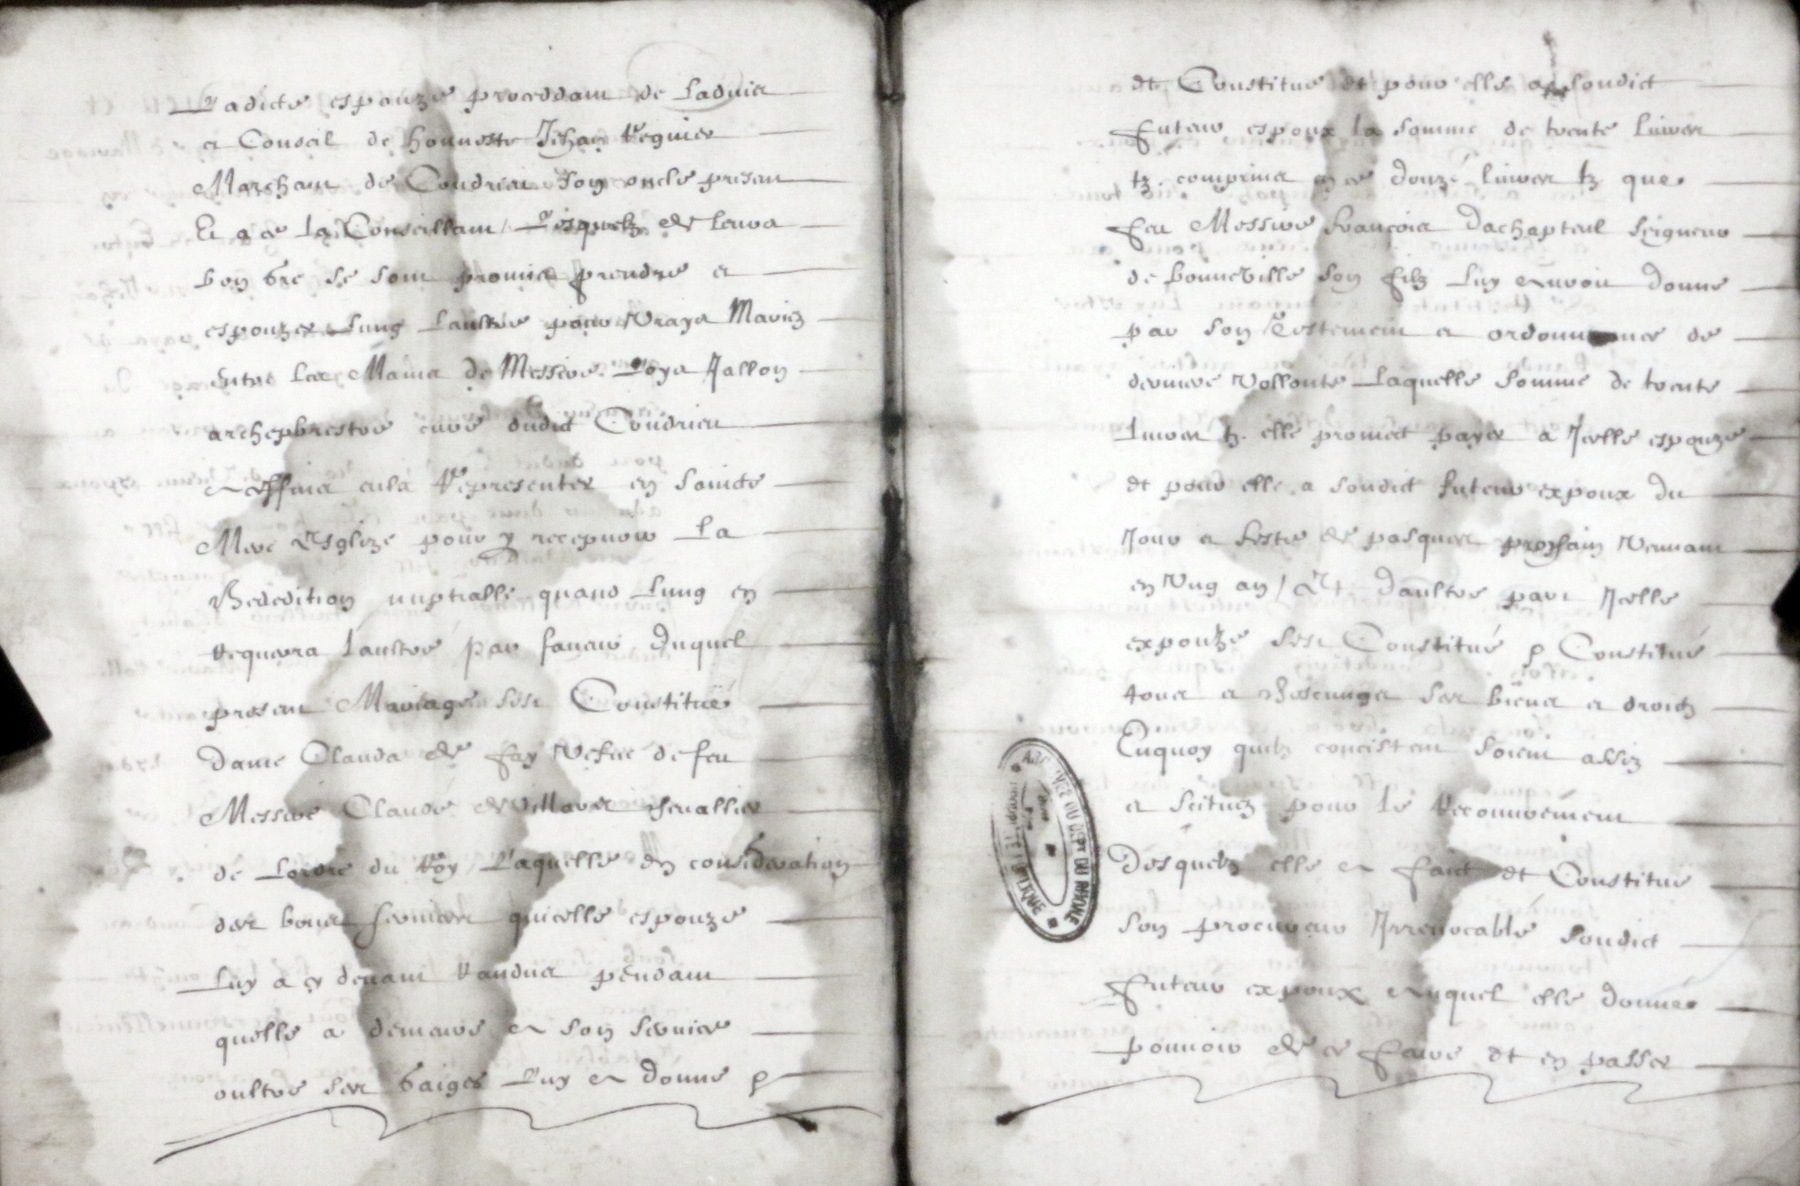 Ladicte espouze proceddant de Ladvis
et Conseil de honneste Jehan Regnier
Marchant de Condrieu son oncle present
Et a ce La Conseillant / Lesquelz de leurs
bon gre se sont promis prendre et
espouzer Lung Laultre pour Vrays Mariez
entre Les Mains de Messire Loys Jallon
archepbrestre cure dudict Condrieu
et cella Representer en Saincte
Mere Esglize pour y recepvoir La
Benedition nuptialle quand Lung en
Requerra Laultre par faveur duquel
present Mariage sest Constitué
dame Clauda de Fay Vefve de feu
Messire Claude de Villars chevallier
de Lordre du Roy Laquelle en consideration
des bons services quicelle espouze
Luy a cy devant Randus pendant
quelle a demeure a son service
oultre ses gaiges Luy a donne p
et Constitue et pour elle a sondict
Futeur espoux la somme de trente livres
tz comprins en ce douze livres tz que
feu Messire François Dachapteul Seigneur
de Bonneville son filz Luy avoit donne
par son Testement et ordonnance de
derniere Vollonte Laquelle somme de trente
livres tz elle promect payer a Jcelle espouze
et pour elle a sondict futeur expoux du
Jour et feste de pasques prochain Venant
en Ung an / Et daultre part Jcelle
expouze sest Constitué p Constitué
tous et ses biens et droictz
Enquoy quilz concistent soient assiz
et scituez pour le Recouvrement
desquelz elle a faict et Constitue
son procureur Jrrevocable sondict
Futeur expoux Auquel elle donne
pouvoir de ce Faire et en passer
ARCHIVES DU DEPT DU RHONE